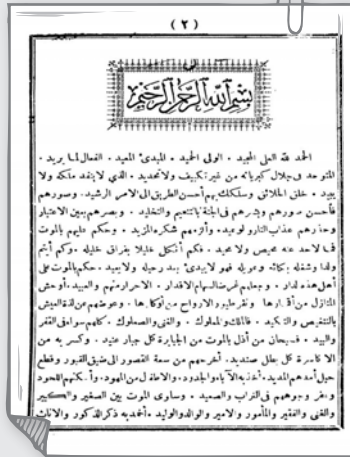 ( ٢ )
بسم الله الرحمن الرحيم
الحمد لله العلى المجيد . الولى الحميد . المبدئ المعيد . الفعال لما يريد .
المتوحد فى جلال كبريائه من غير تكييف ولا تحديد . الذى لا ينفد ملكه ولا
يبيد . خلق الخلائق وسلك بهم أحسن الطريق الى الامر الرشيد . وصورهم
فأحسن صورهم وبشرهم فى الجنة بالتنعيم والتخليد . وبصرهم بعين الاعتبار
وحذرهم عذاب النار والوعيد . وألزمهم شكره المزيد . وحكم عليهم بالموت
فما لاحد عنه محيص ولا محيد . فكم أثكل خليلا بفراق خليله . وكم أيتم
ولدا وشغله ببكائه وعويله فهو لا يبدئ بعد رحيله ولا يعيد . حكم بالموت على
أهل هذه الدار . وجعلهم غرضا لسهام الاقدار . الاحرار منهم والعبيد . أوحش
المنازل من أقمارها ونفر طيور الارواح من أوكارها . وعوضهم عن لذة العيش
بالتنغيص والتنكيد . فالملك والمملوك . والغنى والصعلوك . كلهم سوا فى القفر
والبيد . فسبحان من أذل بالموت من الجبابرة كل جبار عنيد . وكسر به من
الاكاسرة كل بطل صنديد . أخرجهم من سعة القصور الى ضيق القبور وقطع
حبل أمدهم المديد . أخذ به الآباء والجدود . والاطفال من المهود . وأسكنهم اللحود
وعفر وجوههم فى التراب والصعيد . وساوى الموت بين الصغير والكبير
والغنى والفقير والمأمور والامير والوالد والوليد . أخمد به ذكر الذكور والاناث